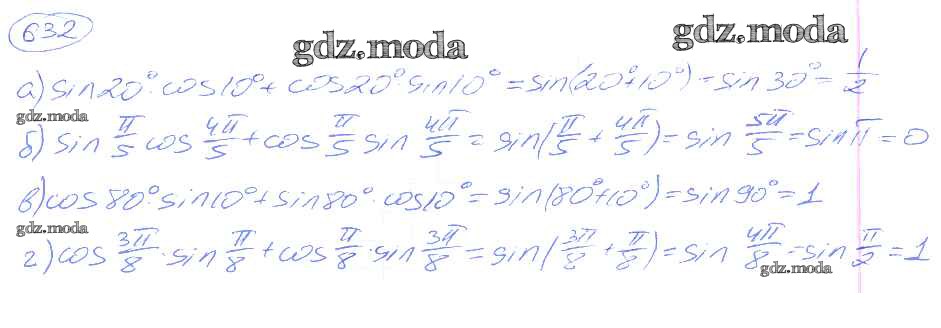 632
gdz.moda
gdz.moda
а) sin20°·cos10°+cos20°·sin10°=sin(20°+10°)=sin30°=1/2
gdz.moda
б) sin π/5 cos 4π/5 + cos π/5 sin 4π/5 = sin(π/5 + 4π/5)= sin 5π/5 = sin π = 0
в) cos80°·sin10°+sin80°·cos10°=sin(80°+10°)=sin90°=1
gdz.moda
г) cos 3π/8 · sin π/8 + cos π/8 · sin 3π/8 = sin(3π/8 + π/8)= sin 4π/8 = sin π/2 = 1
gdz.moda